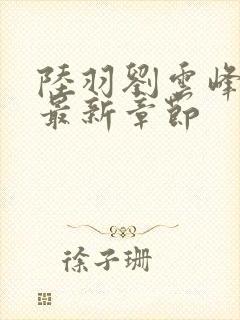 陸羽劉雲峰
最新章節
徐子珊